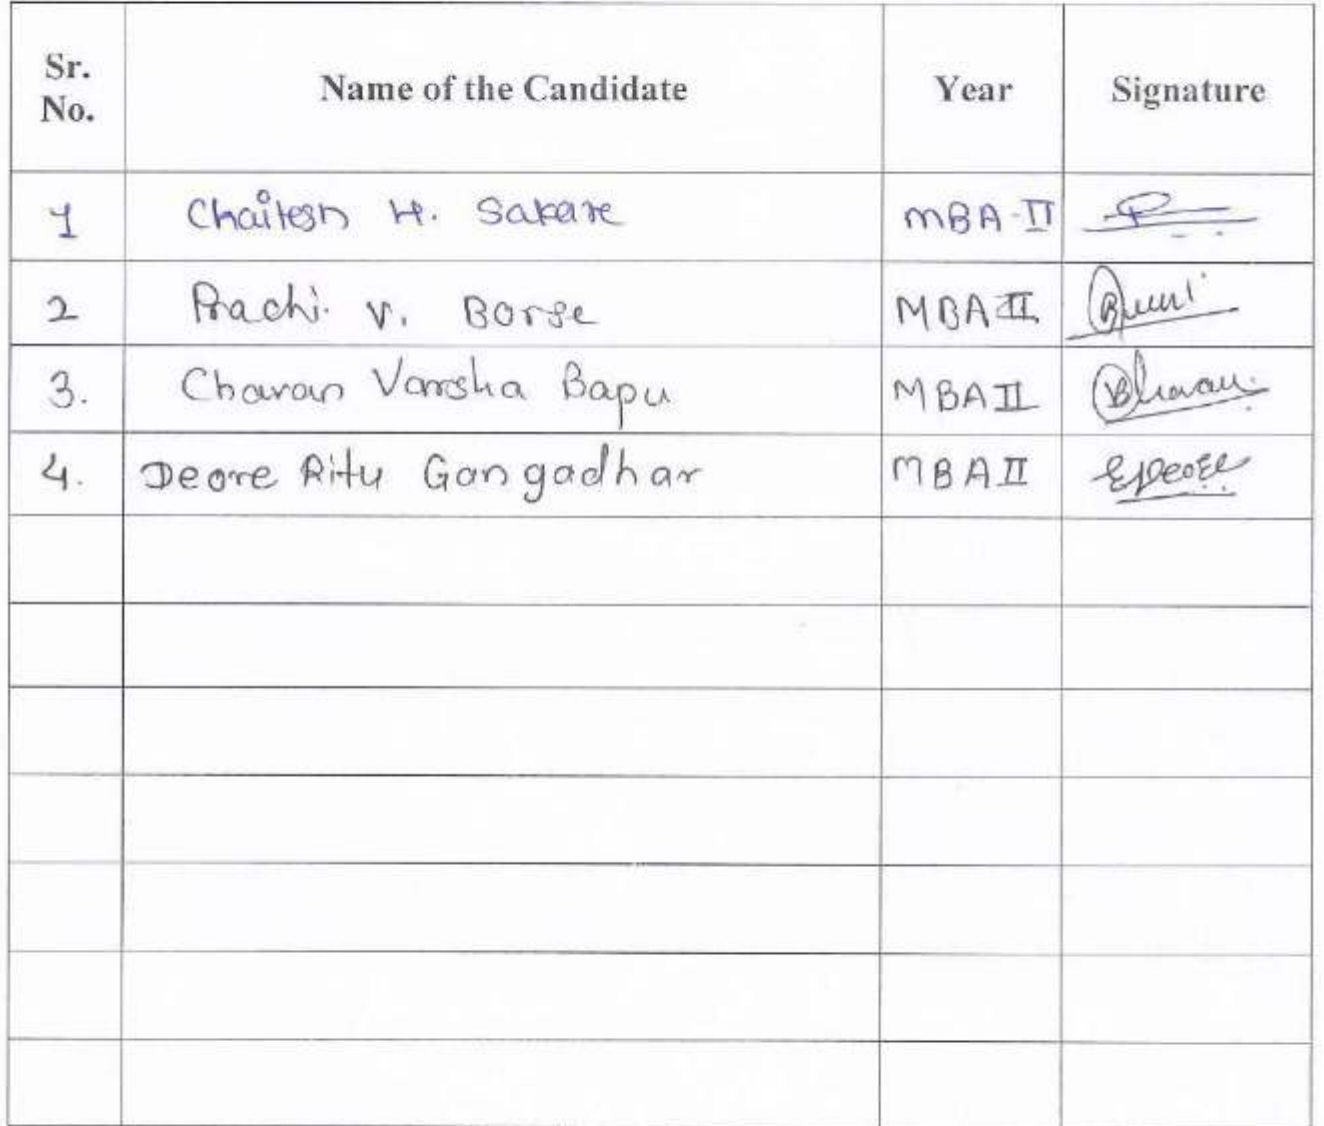 Sr. No. Name of the Candidate Year Signature
1 Chaitesh H. Sakare MBA-II
2 Prachi. V. Borse MBA II
3. Chavan Varsha Bapu MBA II
4. Deore Ritu Gangadhar MBA II